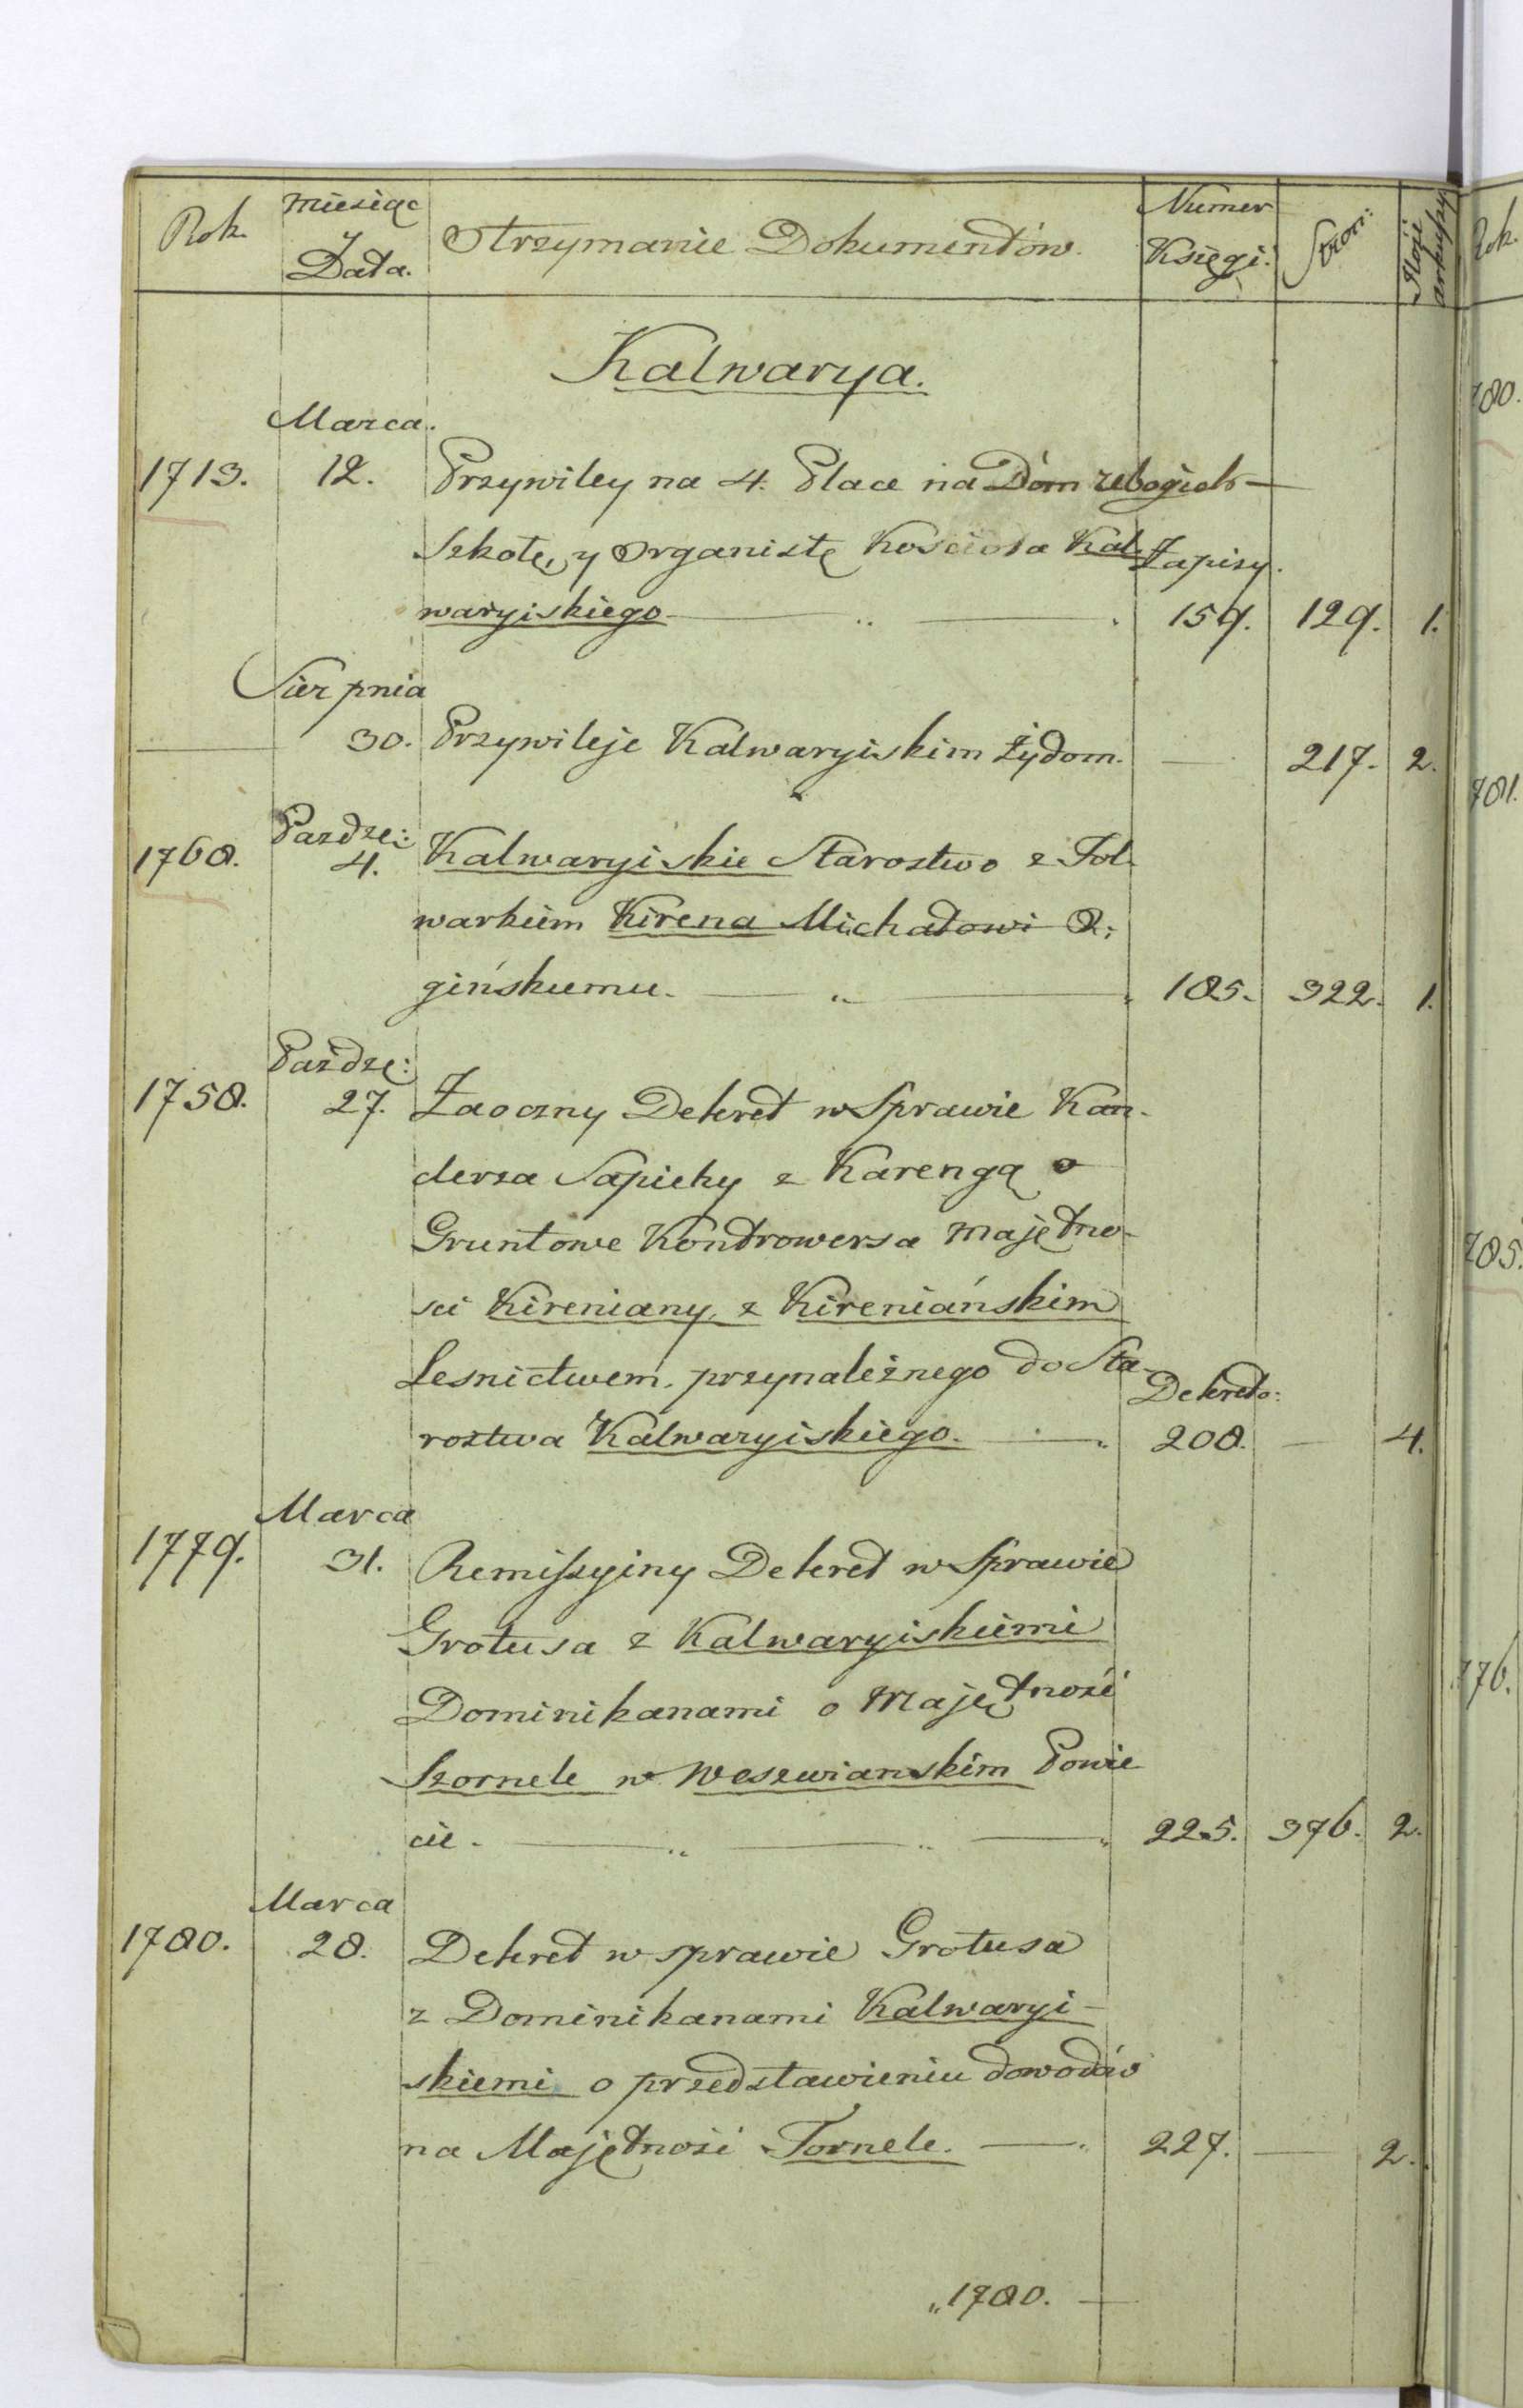 Rok. miesiąc i Data. Otrzymanie Dokumentów. Numer Księgi: Stron: Ilość arkuszy Rok.
Kalwarya.
Marca.
1713. 12. Przywiley na 4. Place na Dom ubogich
Szkołę, y Organistę Kościoła Kal- Zapisy.
waryiskiego 159. 129. 1.
Sierpnia
30. Przywileje Kalwaryiskim Żydom. — 217. 2.
Pazdze:
1768. 4. Kalwaryiskie Starostwo z Fol-
warkiem Kirena Michałowi O-
gińskiemu. 185. 322. 1.
Paźdze:
1758. 27. Zaoczny Dekret w Sprawie Kan-
clerza Sapiehy z Karengą o
Gruntowe Kontrowersa majętno-
sci Kireniany, z Kireniańskim
Lesnictwem, przynależnego do Sta-
Dekreto:
rostwa Kalwaryiskiego. 208. — 4.
Marca
1779. 31. Remissyiny Dekret w Sprawie
Grotusa z Kalwaryiskiemi
Dominikanami o Majętność
Szornele w Weszwianskim Powie
cie. 225. 376. 2.
Marca
1780. 28. Dekret w sprawie Grotusa
z Dominikanami Kalwaryi-
skiemi o przedstawieniu dowodów
na Majętność Tornele. 227. — 2.
"1780. —
780.
781.
785.
776.